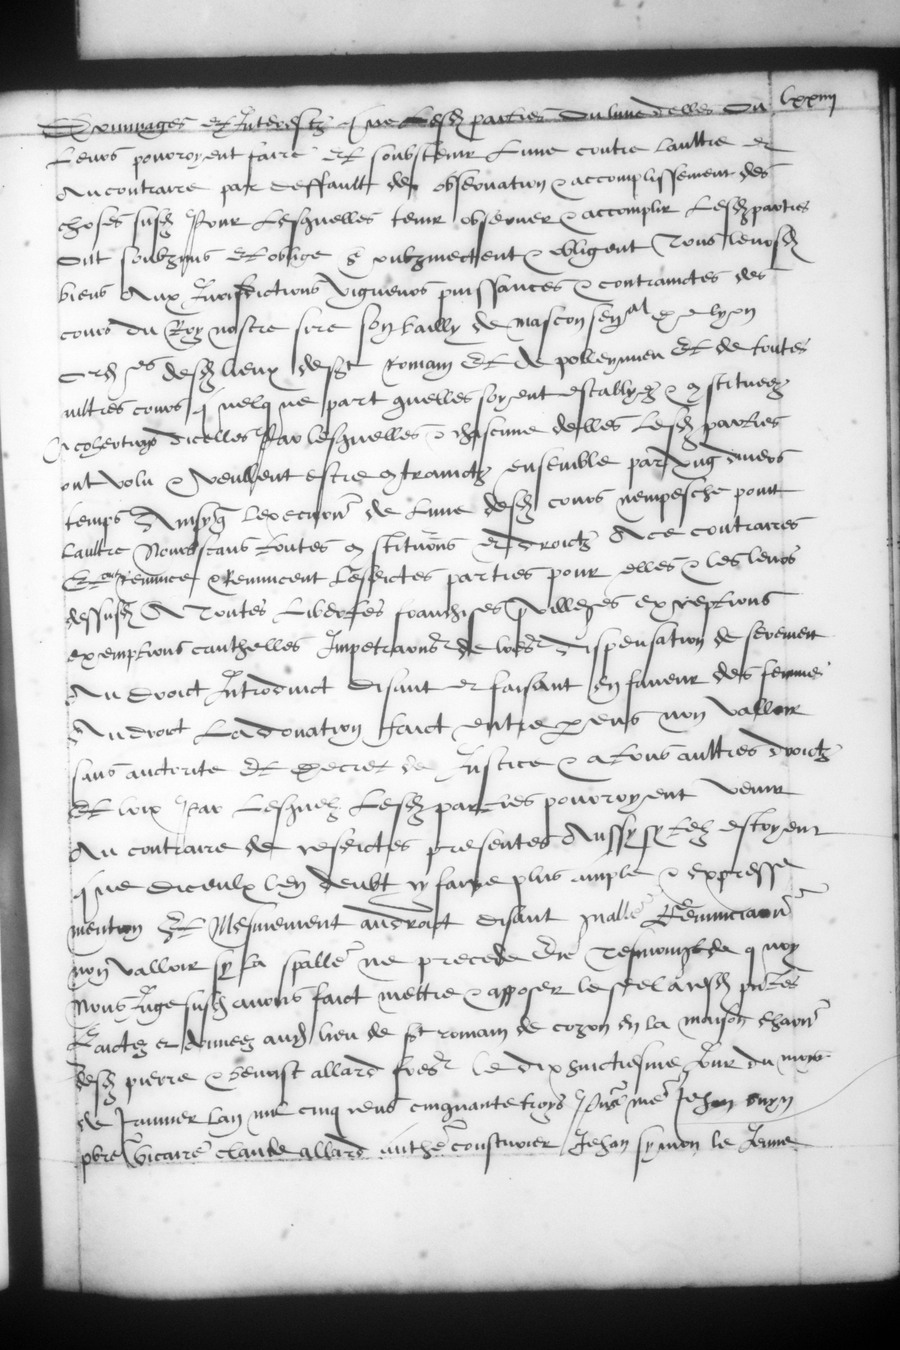 lxxiiii
Dommages et Interestz que lesd parties ou lune delles ou
leurs pourroyent faire et soubstenir lune contre laultre et
Au contraire par deffault de observation & accomplissement des
choses susd Pour lesquelles tenir observer & accomplir lesd parties
ont soubzmis et oblige & soubzmectent & obligent Tous leursd
biens Aux Jurisdictions vigueurs puissances & contrainctes des
cours du Roy nostre sire son bailly de mascon sen al de lyon
desd lieux de st Romain Et de polleymieu Et de toutes
aultres cours quelque part quelles soyent establyes & constituees
cohertions dicelles Par lesquelles & chascune delles lesd parties
ont volu & veullent estre contrainctz ensemble par ung divers
temps Ainsy que lexecution de lune desd cours nempesche point
laultre Nonobstans toutes constitutions et droictz A ce contraires
Et ont renonce & Renuncent lesdictes parties pour elles & les leurs
dessusd A Toutes libertes franchises privilleges exceptions
exemptions cauthelles Impetrations de lres dispensation de serement
Au droict Introduict disant et faisant en faveur des femmes
Au droit La donation faict entre gens non valloir
sans auctorite et decret de Justice & a tous aultres droictz
Et loix Par lesquelz lesd parties pourroyent venir
Au contraire de cesdictes presentes Aussy sy telz estoyent
que diceulx len deubt cy faire plus ample & expresse
mention Et Mesmement au droit disant generalle Renunciation
non valloir sy la specialle ne precede En Tesmoingz de quoy
Nous Juge susd avons faict mettre & apposer le seel a cesd pntes
Faictes et donnees aud lieu de st romain de cozon en la maison
desd pierre & benoist allard freres Le dix huictiesme Jour du moys
de Janvier lan mil cinq cens cinquante troys Pns mre Jehan
pbre vicaire claude allard anthe cousturier Jehan symon le Jeune